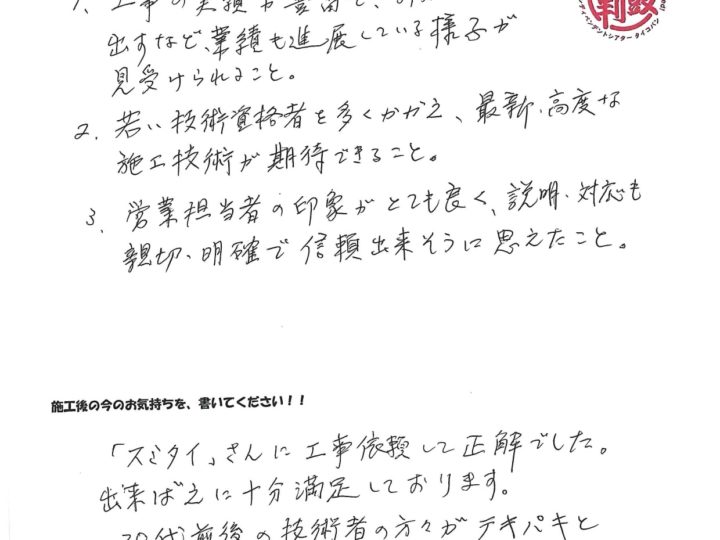 1、工事の実績が豊富で、
出すなど、業績も進展している様子が
見受けられること。
2、若い技術資格者を多くかかえ、最新・高度な
施工技術が期待できること。
3、営業担当者の印象がとても良く、説明・対応も
親切、明確で信頼出来そうに思えたこと。
施工後の今のお気持ちを、書いてください！！
「スミタイ」さんに工事依頼して正解でした。
出来ばえに十分満足しております。
20代前後の技術者の方々がテキパキと